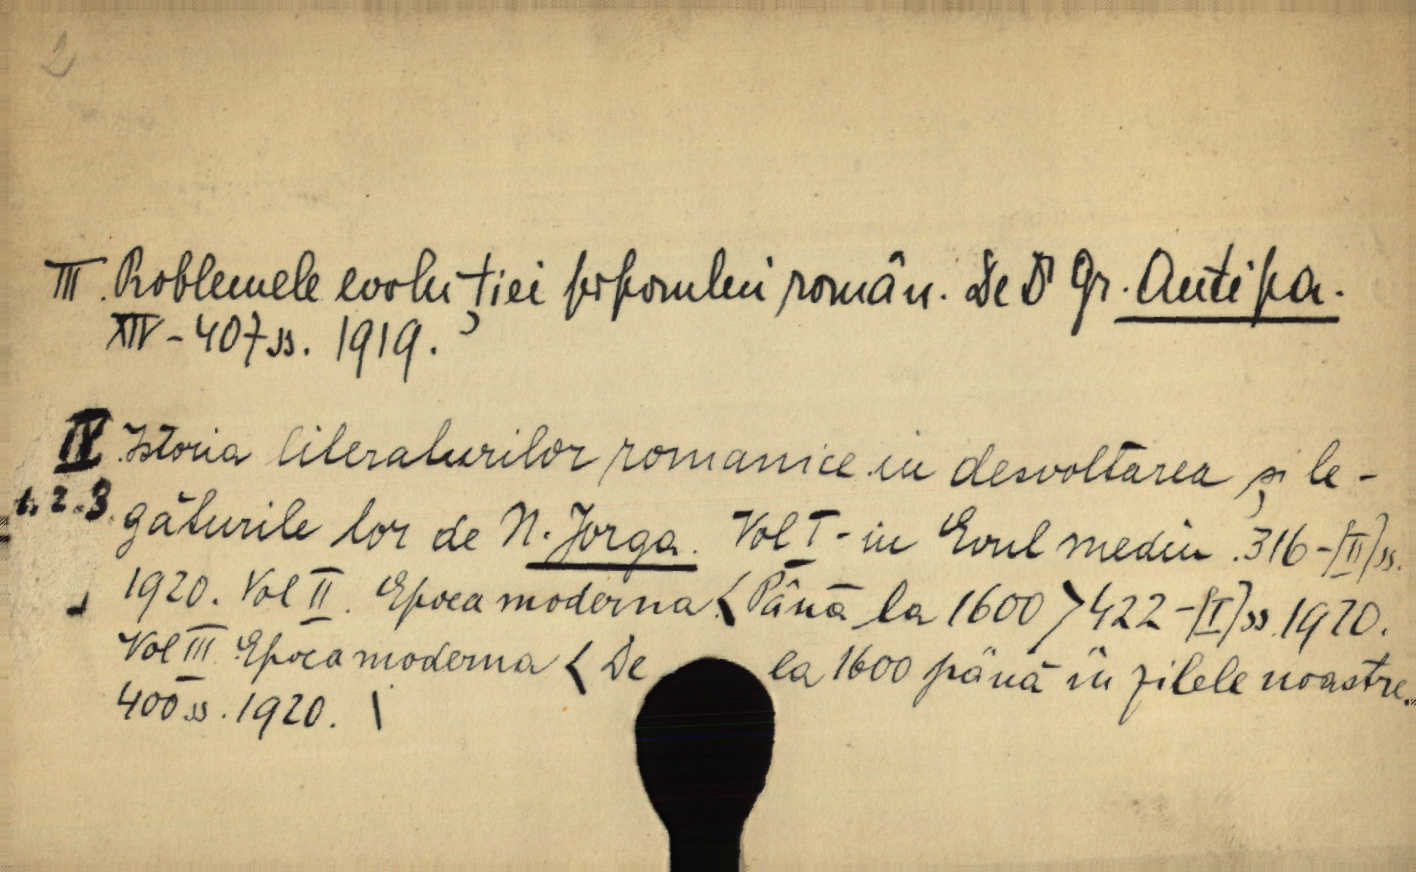 2
III. Problemele evoluției poporului român. De Dr Gr. Antipa.
XIV - 407 ss. 1919.
IV Istoria literaturilor romanice in desvoltarea și le-
1. 2. 3. găturile lor de N. Jorga. Vol I - in Evul mediu. 316 - [II] ss.
1920. Vol II. Epoca moderna < Până la 1600 > 422 - [I] ss. 1920.
Vol III Epoca moderna < De la 1600 până in zilele noastre.
400 ss. 1920. \